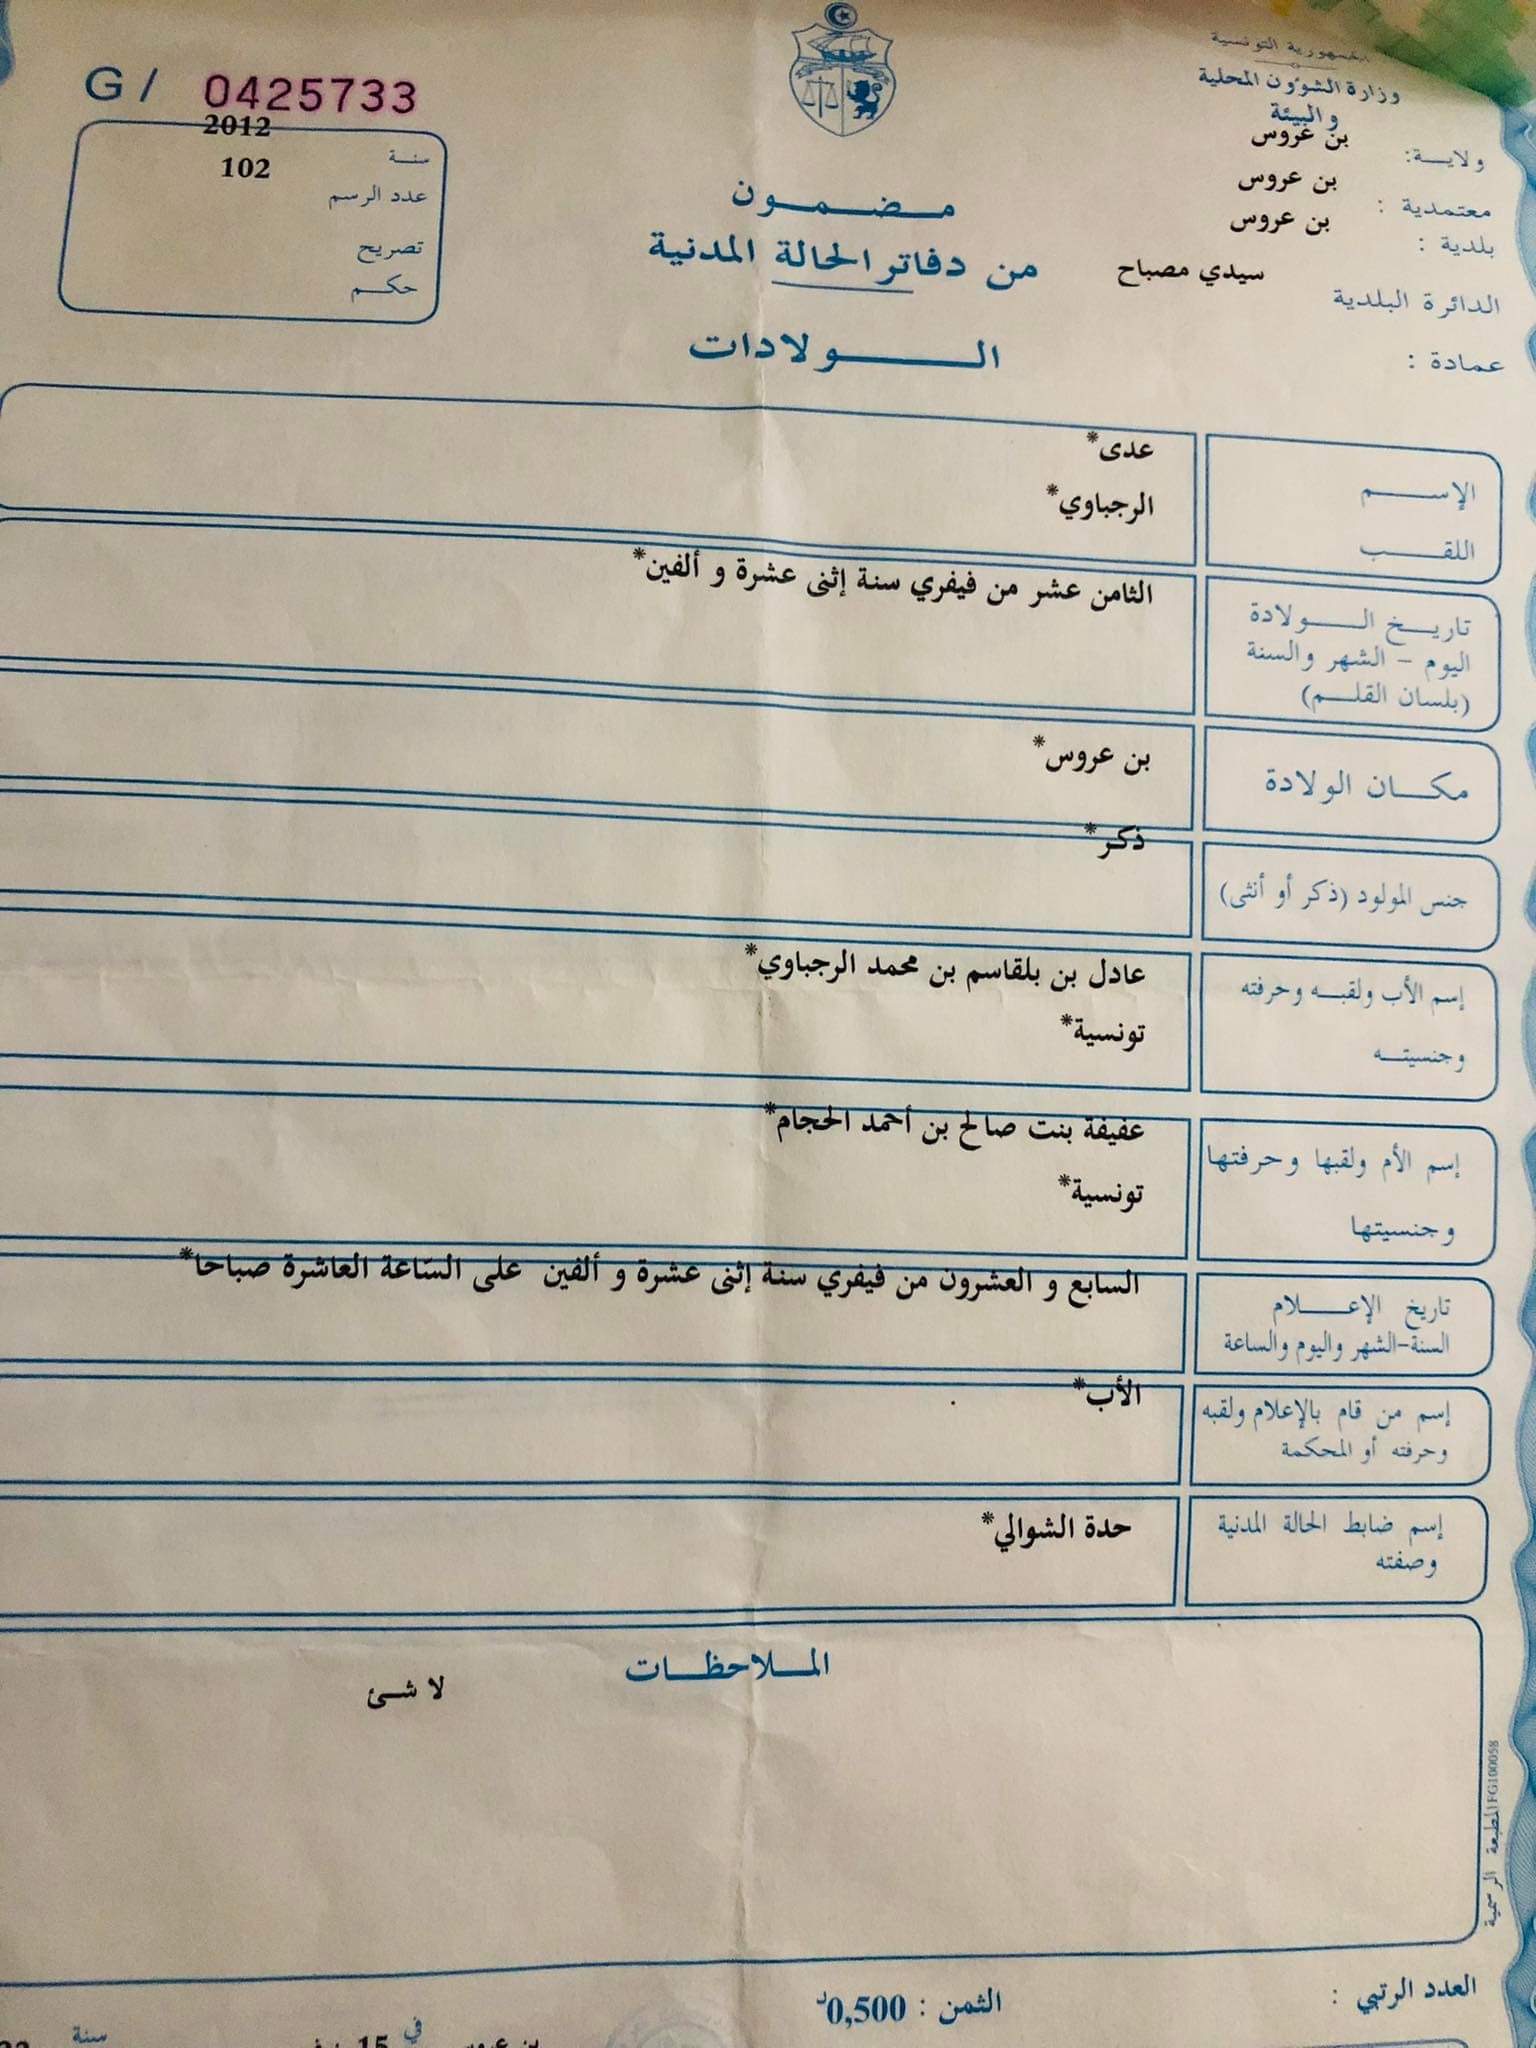 الجمهورية التونسية
وزارة الشؤون المحلية
والبيئة
ولاية: بن عروس
معتمدية : بن عروس
بلدية : بن عروس
الدائرة البلدية سيدي مصباح
عمادة :
G/ 0425733
سنة 2012
عدد الرسم 102
تصريح
حكم
مضمون
من دفاتر الحالة المدنية
الولادات
الإسم عدى*
اللقب الرجباوي*
تاريخ الولادة الثامن عشر من فيفري سنة إثنى عشرة و ألفين*
اليوم - الشهر والسنة
(بلسان القلم)
مكان الولادة بن عروس*
جنس المولود (ذكر أو أنثى) ذكر*
إسم الأب ولقبه وحرفته عادل بن بلقاسم بن محمد الرجباوي*
وجنسيته تونسية*
إسم الأم ولقبها وحرفتها عفيفة بنت صالح بن أحمد الحجام*
وجنسيتها تونسية*
تاريخ الإعلام السابع و العشرون من فيفري سنة إثنى عشرة و ألفين على السّاعة العاشرة صباحا*
السنة-الشهر واليوم والساعة
إسم من قام بالإعلام ولقبه الأب*
وحرفته أو المحكمة
إسم ضابط الحالة المدنية حدة الشوالي*
وصفته
الملاحظات
لا شئ
المطبعة الرسمية FG100058
العدد الرتبي :
الثمن : 0,500د
بن عروس في 15 سنة